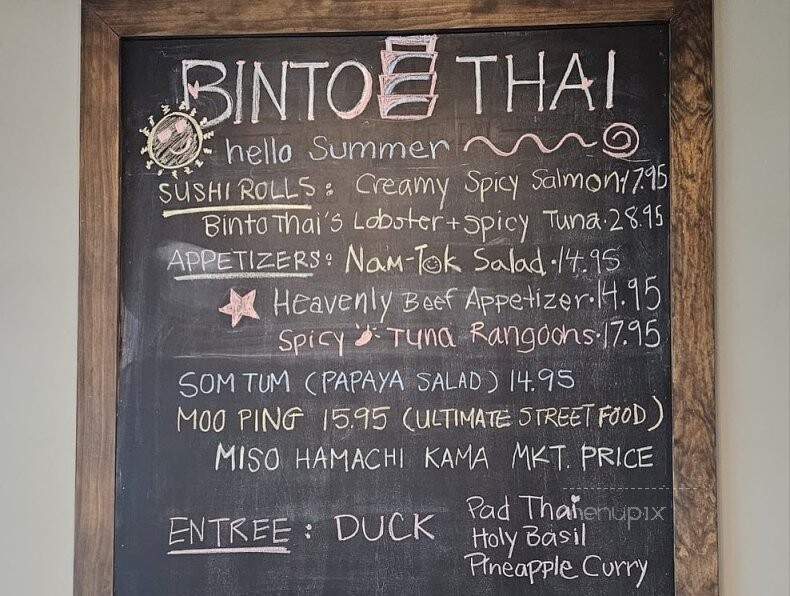 BINTO THAI
hello Summer
SUSHI ROLLS: Creamy Spicy Salmon 17.95
Binto Thai's Lobster + Spicy Tuna · 28.95
APPETIZERS: Nam-Tok Salad · 14.95
Heavenly Beef Appetizer · 14.95
Spicy Tuna Rangoons · 17.95
SOM TUM (PAPAYA SALAD) 14.95
MOO PING 15.95 (ULTIMATE STREET FOOD)
MISO HAMACHI KAMA MKT. PRICE
ENTREE: DUCK
Pad Thai
Holy Basil
Pineapple Curry
menupix